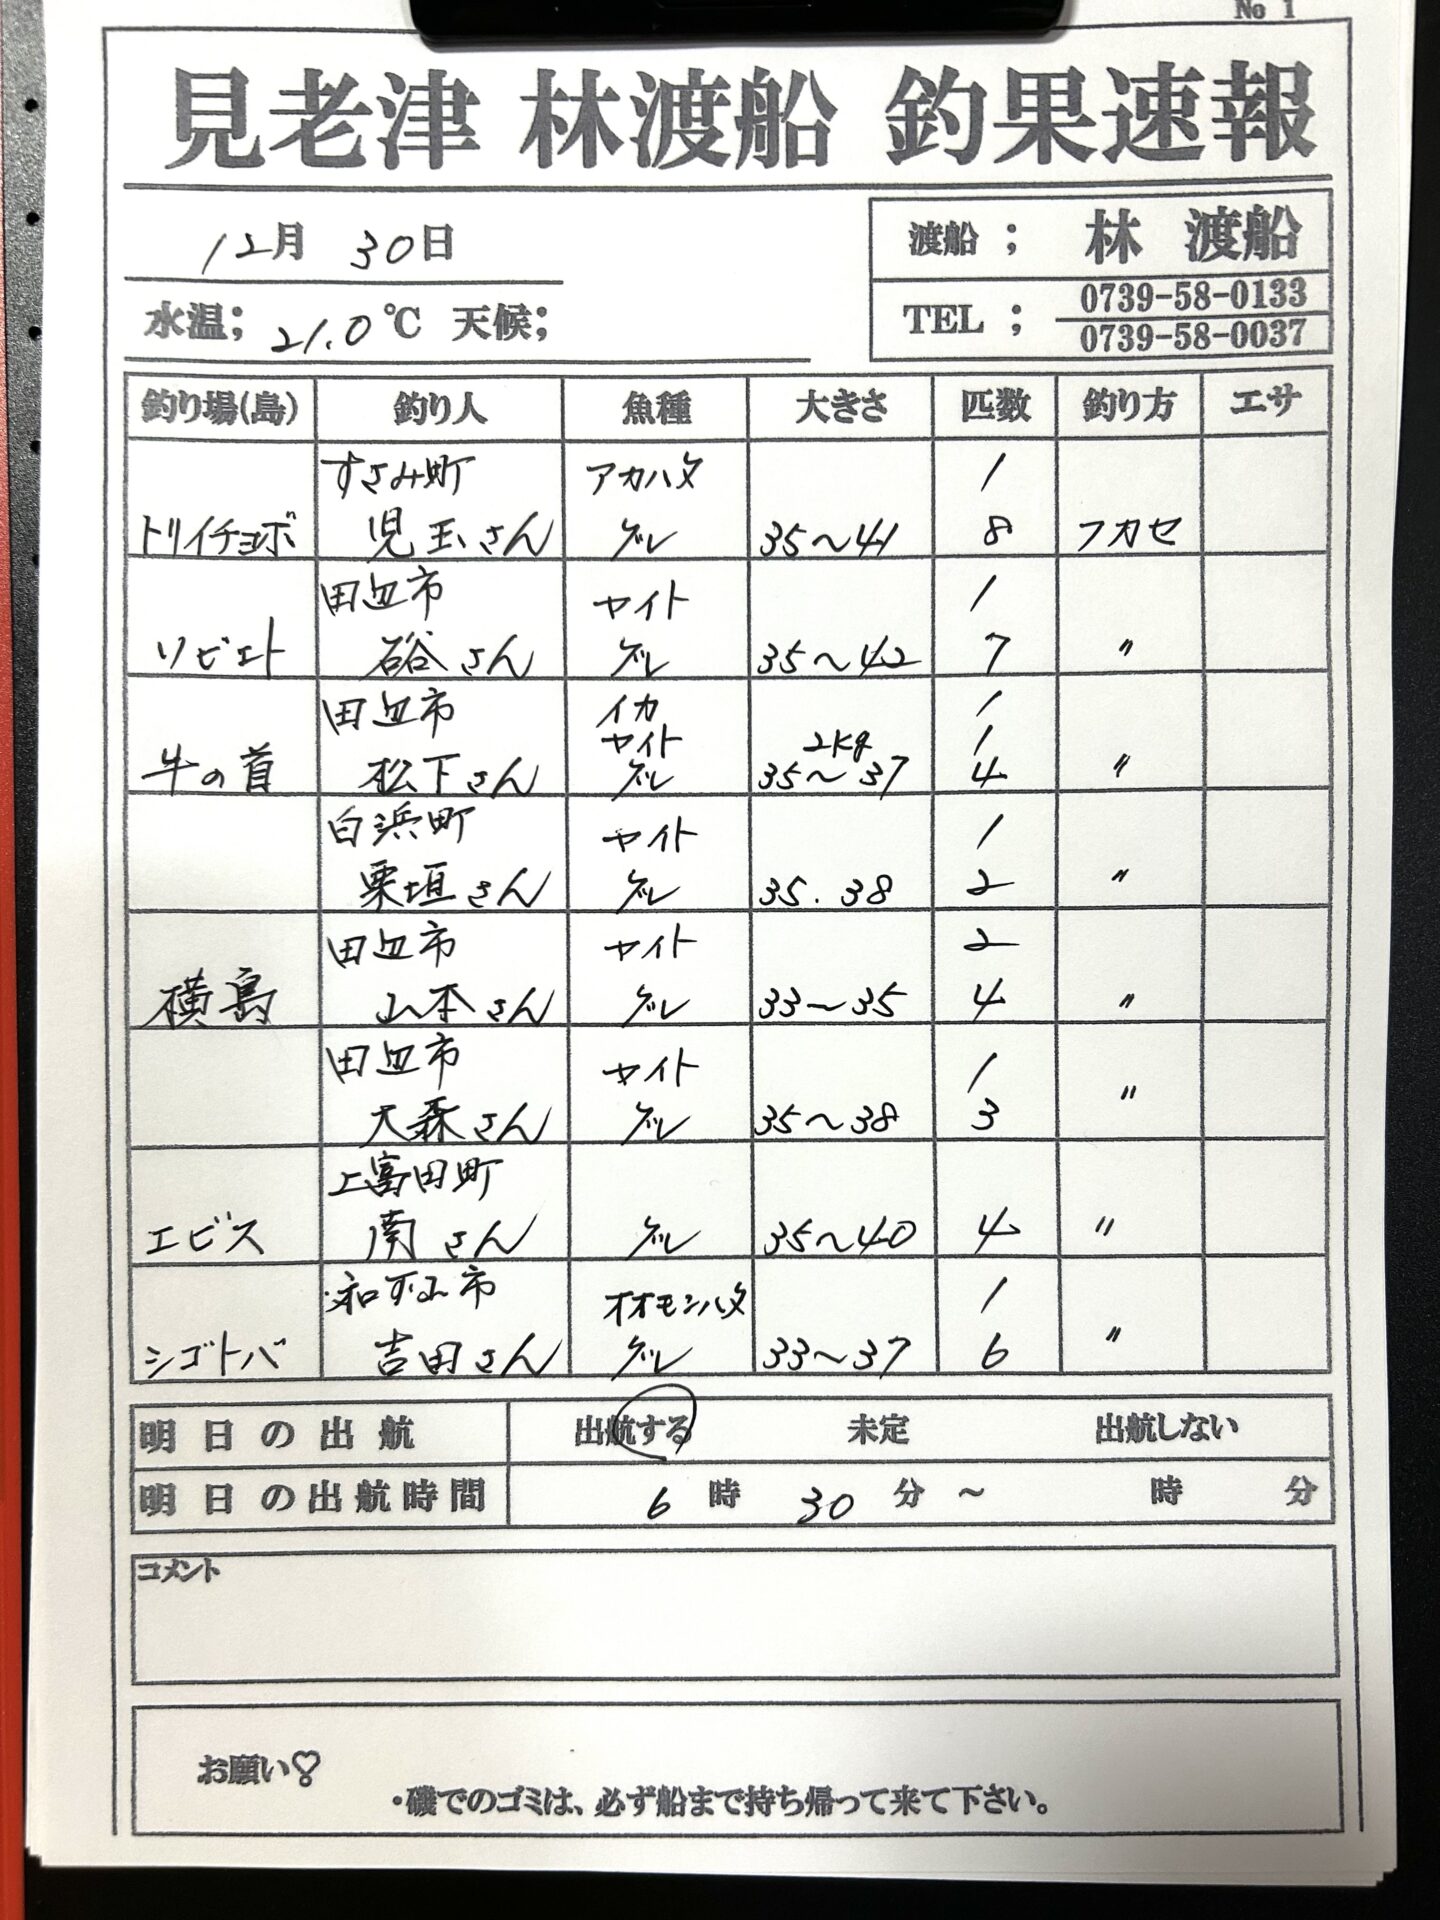 No 1
見老津 林渡船 釣果速報
12月 30日
渡船 ; 林 渡船
水温; 21.0 ℃ 天候;
TEL ; 0739-58-0133
0739-58-0037
釣り場(島) 釣り人 魚種 大きさ 匹数 釣り方 エサ
すさみ町 アカハタ 1
トリイチョボ 児玉さん グレ 35〜41 8 フカセ
田辺市 ヤイト 1
ソビエト 硲さん グレ 35〜42 7 〃
田辺市 イカ 1
ヤイト 2kg 1
牛の首 松下さん グレ 35〜37 4 〃
白浜町 ヤイト 1
栗垣さん グレ 35.38 2 〃
田辺市 ヤイト 2
横島 山本さん グレ 33〜35 4 〃
田辺市 ヤイト 1
大森さん グレ 35〜38 3 〃
上富田町
エビス 南さん グレ 35〜40 4 〃
市 オオモンハタ 1
シゴトバ 吉田さん グレ 33〜37 6 〃
明日の出航 出航する 未定 出航しない
明日の出航時間 6 時 30 分 〜 時 分
コメント
お願い♡
・磯でのゴミは、必ず船まで持ち帰って来て下さい。